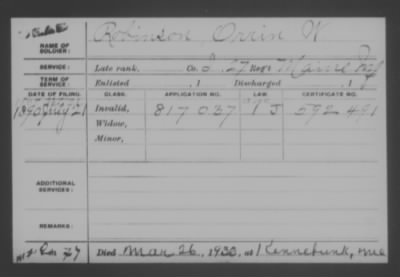 Robinson, Orrin W
NAME OF SOLDIER:
SERVICE: Late rank, Co. I, 27 Reg't Maine Inf
TERM OF SERVICE: Enlisted , 1 Discharged , 1
DATE OF FILING. CLASS. APPLICATION NO. LAW. CERTIFICATE NO.
1890 July 21 Invalid, 817 037 J 592 491
Widow,
Minor,
ADDITIONAL SERVICES:
REMARKS:
Died Mar 26, 1930, at Kennebunk, Me